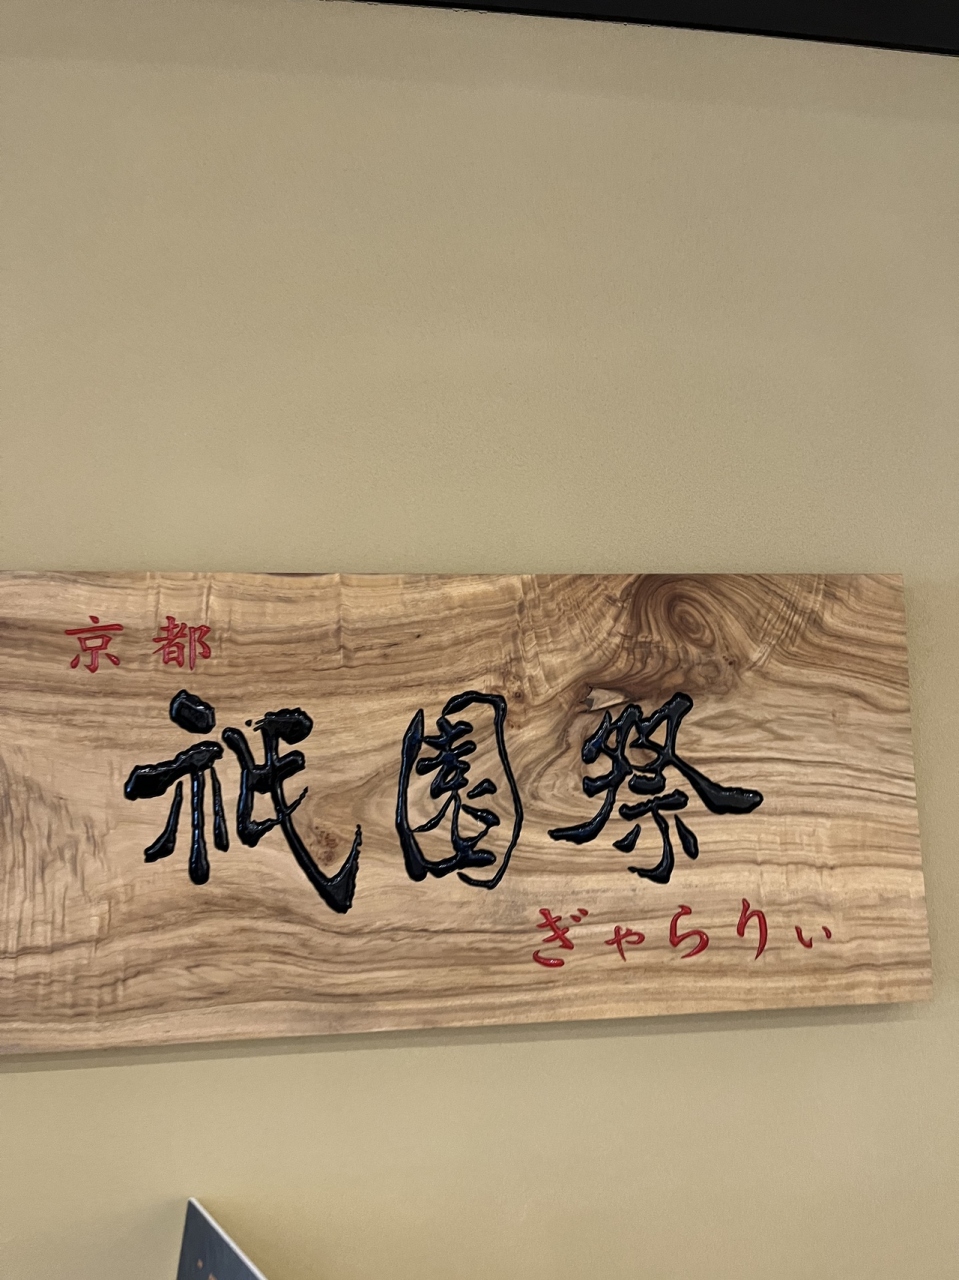 京都
祇園祭
ぎゃらりぃ